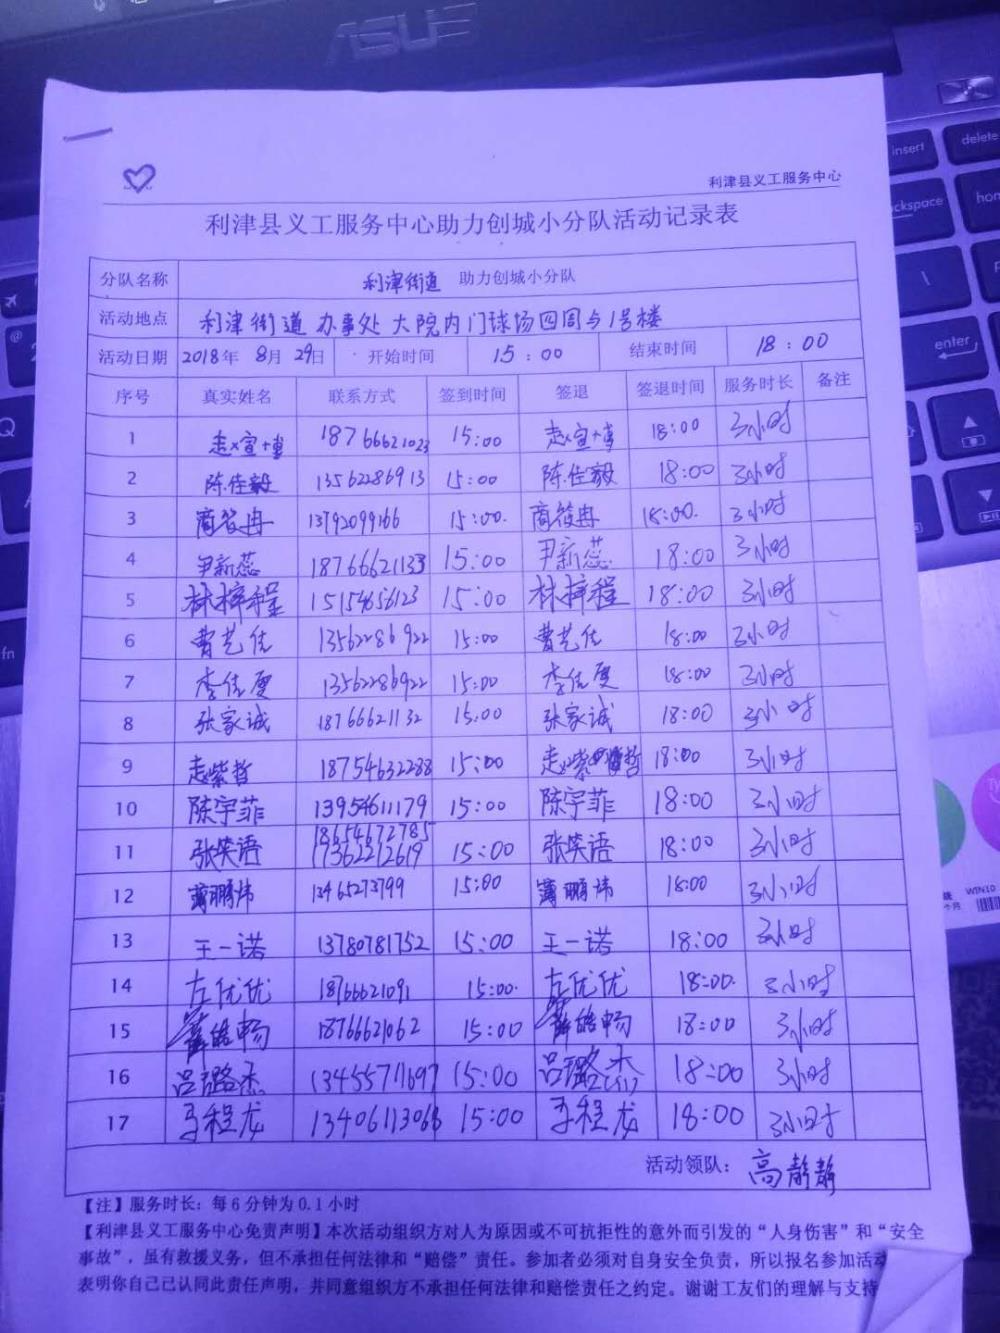 ASUS
insert
delete
利津县义工服务中心
利津县义工服务中心助力创城小分队活动记录表
分队名称 利津街道 助力创城小分队
活动地点 利津街道办事处大院内门球场四周与1号楼
活动日期 2018年 8月 29日 开始时间 15:00 结束时间 18:00
序号 真实姓名 联系方式 签到时间 签退 签退时间 服务时长 备注
1 赵宣博 18766621023 15:00 赵宣博 18:00 3小时
2 陈佳毅 13562286913 15:00 陈佳毅 18:00 3小时
3 商筱冉 13792099166 15:00. 商筱冉 18:00. 3小时
4 尹新蕊 18766621133 15:00 尹新蕊 18:00 3小时
5 林梓程 15154656123 15:00 林梓程 18:00 3小时
6 曹艺佳 13562286922 15:00 曹艺佳 18:00 3小时
7 李佳夏 13562286922 15:00 李佳夏 18:00 3小时
8 张家诚 18766621132 15:00 张家诚 18:00 3小时
9 赵紫哲 18754632288 15:00 赵紫哲 18:00 3小时
10 陈宇菲 13954611179 15:00 陈宇菲 18:00 3小时
18654672785
11 张笑语 17362212619 15:00 张笑语 18:00 3小时
12 薄鹏炜 13465273799 15:00 薄鹏炜 18:00 3小时
13 王一诺 13780781752 15:00 王一诺 18:00 3小时
14 左优优 18766621091 15:00. 左优优 18:00. 3小时
15 18766621062 15:00 18:00 3小时
16 吕璐杰 13455711697 15:00 吕璐杰 18:00 3小时
17 马程龙 13406113068 15:00 马程龙 18:00 3小时
活动领队： 高静静
【注】服务时长：每6分钟为0.1小时
【利津县义工服务中心免责声明】本次活动组织方对人为原因或不可抗拒性的意外而引发的“人身伤害”和“安全
事故”，虽有救援义务，但不承担任何法律和“赔偿”责任。参加者必须对自身安全负责，所以报名参加活动
表明你自己已认同此责任声明，并同意组织方不承担任何法律和赔偿责任之约定。谢谢工友们的理解与支持
ckspace
hom
enter
fn
WIN10